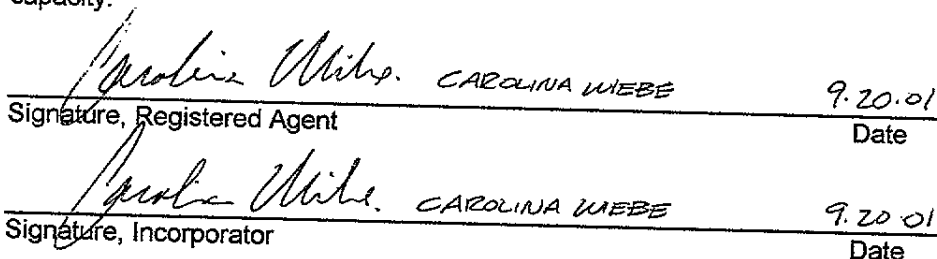 capacity.
Carolina Wiebe. CAROLINA WIEBE 9.20.01
Signature, Registered Agent Date
Carolina Wiebe. CAROLINA WIEBE 9.20.01
Signature, Incorporator Date